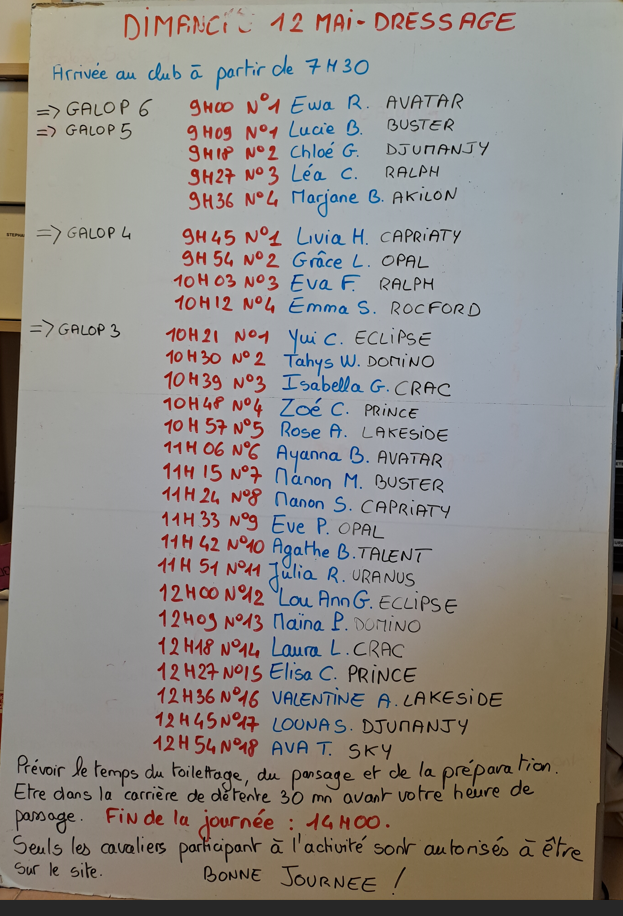 DIMANCHE 12 MAI - DRESSAGE
Arrivée au club à partir de 7H30
=> GALOP 6 9H00 N°1 Ewa R. AVATAR
=> GALOP 5 9H09 N°1 Lucie B. BUSTER
9H18 N°2 Chloé G. DJUMANJY
9H27 N°3 Léa C. RALPH
9H36 N°4 Marjane B. AKILON
=> GALOP 4 9H45 N°1 Livia H. CAPRIATY
9H54 N°2 Grâce L. OPAL
10H03 N°3 Eva F. RALPH
10H12 N°4 Emma S. ROCFORD
=> GALOP 3 10H21 N°1 Yui C. ECLIPSE
10H30 N°2 Tahys W. DOMINO
10H39 N°3 Isabella G. CRAC
10H48 N°4 Zoé C. PRINCE
10H57 N°5 Rose A. LAKESIDE
11H06 N°6 Ayanna B. AVATAR
11H15 N°7 Manon M. BUSTER
11H24 N°8 Manon S. CAPRIATY
11H33 N°9 Eve P. OPAL
11H42 N°10 Agathe B. TALENT
11H51 N°11 Julia R. URANUS
12H00 N°12 Lou Ann G. ECLIPSE
12H09 N°13 Maïna P. DOMINO
12H18 N°14 Laura L. CRAC
12H27 N°15 Elisa C. PRINCE
12H36 N°16 VALENTINE A. LAKESIDE
12H45 N°17 LOUNA S. DJUMANJY
12H54 N°18 AVA T. SKY
Prévoir le temps du toilettage, du pansage et de la préparation.
Etre dans la carrière de détente 30 mn avant votre heure de
passage. FIN de la journée : 14H00.
Seuls les cavaliers participant à l'activité sont autorisés à être
sur le site. BONNE JOURNEE !